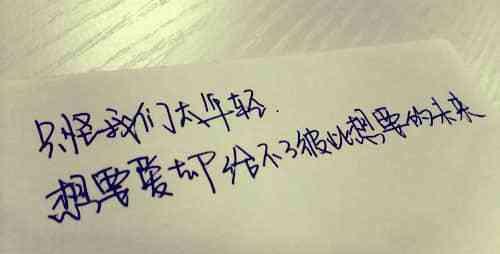 只怪我们太年轻.
想要爱却给不了彼此想要的未来